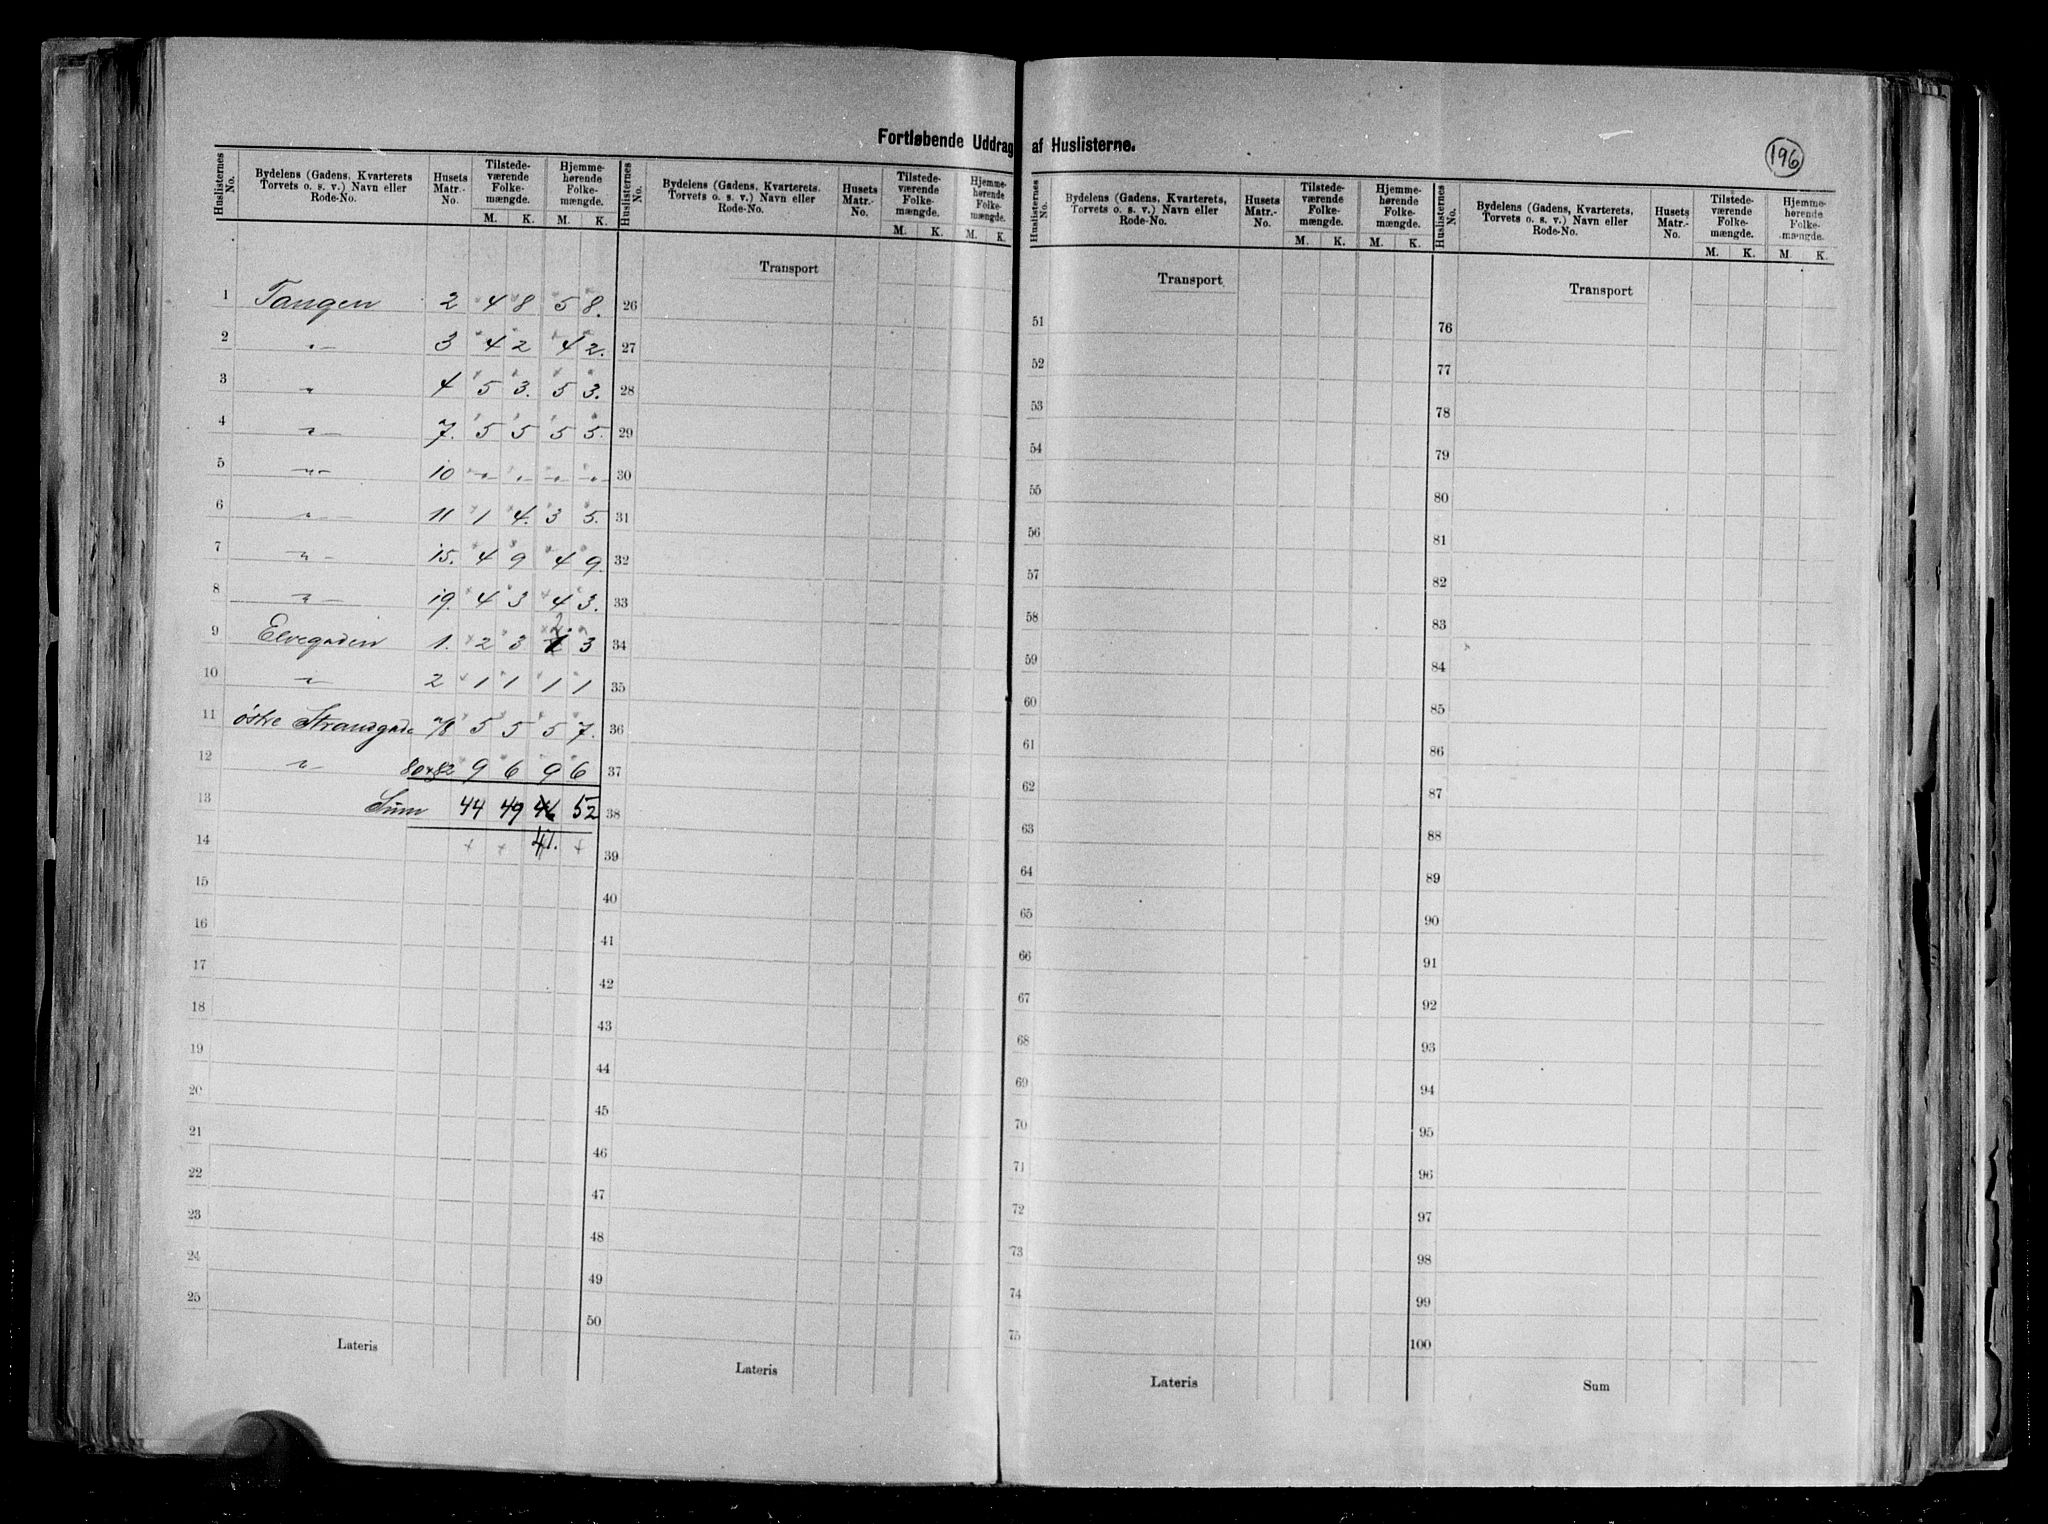 Fortløbende Uddrag af Huslisterne.
196
Huslisternes No. Bydelens (Gadens, Kvarterets Torvets o. s. v.) Navn eller Rode-No. Husets Matr.-No. Tilstedeværende Folkemængde. M. K. Hjemmehørende Folkemængde. M. K.
1 Tangen 2 4 8 5 8.
2 " 3 4 2 4 2.
3 " 4 5 3. 5 3.
4 " 7. 5 5 5 5.
5 " 10 " " " "
6 " 11 1 4. 3 5.
7 " 15. 4 9 4 9
8 " 19. 4 3 4 3.
9 Elvegaden 1. 2 3 2 3
10 " 2 1 1 1 1
11 østre Strandgade 78 5 5 5 7.
12 " 80+82 9 6 9 6
13 Sum 44 49 46 52
14 47.
15
16
17
18
19
20
21
22
23
24
25
Lateris
Huslisternes No. Bydelens (Gadens, Kvarterets, Torvets o. s. v.) Navn eller Rode-No. Husets Matr.-No. Tilstedeværende Folkemængde. M. K. Hjemmehørende Folkemængde. M. K.
Transport
26
27
28
29
30
31
32
33
34
35
36
37
38
39
40
41
42
43
44
45
46
47
48
49
50
Lateris
Huslisternes No. Bydelens (Gadens, Kvarterets, Torvets o. s. v.) Navn eller Rode-No. Husets Matr.-No. Tilstedeværende Folkemængde. M. K. Hjemmehørende Folkemængde. M. K.
Transport
51
52
53
54
55
56
57
58
59
60
61
62
63
64
65
66
67
68
69
70
71
72
73
74
75
Lateris
Huslisternes No. Bydelens (Gadens, Kvarterets, Torvets o. s. v.) Navn eller Rode-No. Husets Matr.-No. Tilstedeværende Folkemængde. M. K. Hjemmehørende Folkemængde. M. K.
Transport
76
77
78
79
80
81
82
83
84
85
86
87
88
89
90
91
92
93
94
95
96
97
98
99
100
Sum